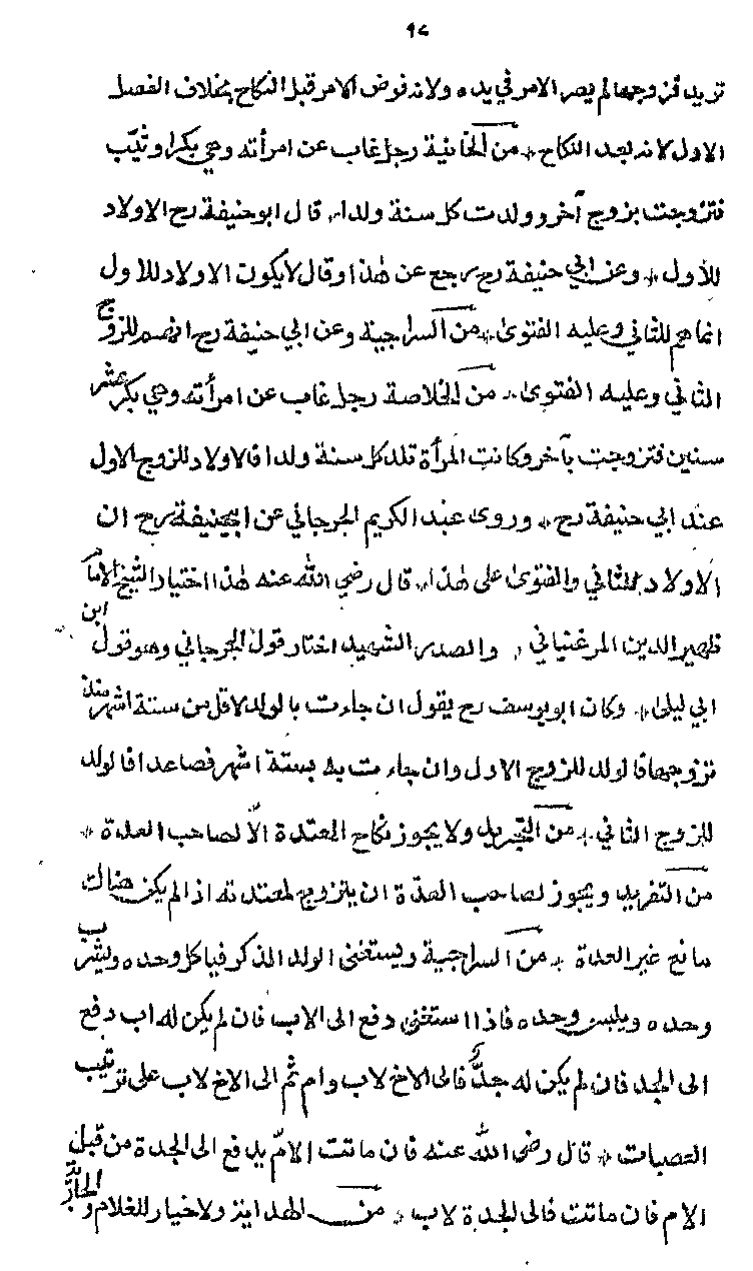 ٩٧
تريد فزوجها لم يصر الامر في يده ولانه فوض الامر قبل النكاح بخلاف الفصل
الاول لانه بعد النكاح * من الخانية رجل غاب عن امرأته وهي بكر او ثيّب
فتزوجت بزوج آخر وولدت كل سنة ولدا * قال ابو حنيفة رح الاولاد
للأول * وعن ابي حنيفة رح رجع عن هذا وقال لا يكون الاولاد للاول
انما هم للثاني وعليه الفتوى * من السراجية وعن ابي حنيفة رح انهم للزوج
الثاني وعليه الفتوى * من الخلاصة رجل غاب عن امرأته وهي بكر عشر
سنين فتزوجت بآخر وكانت المرأة تلد كل سنة ولدا فالاولاد للزوج الاول
عند ابي حنيفة رح * وروى عبد الكريم الجرجاني عن ابيحنيفة رح ان
الاولاد للثاني والفتوى على هذا * قال رضي الله عنه هذا اختيار الشيخ الامام
ظهير الدين المرغيناني * والصدر الشهيد اختار قول الجرجاني وهو قول ابن
ابي ليلى * وكان ابو يوسف رح يقول ان جاءت بالولد لاقل من ستة اشهر منذ
تزوجها فالولد للزوج الاول وان جاءت به بستة اشهر فصاعدا فالولد
للزوج الثاني * من التجريد ولا يجوز نكاح المعتدة الّا لصاحب العدة *
من التفريد ويجوز لصاحب العدّة ان يتزوج لمعتدته اذا لم يكن هناك
مانع غير العدة * من السراجية ويستغنى الولد الذكر فياكل وحده ويشرب
وحده ويلبس وحده فاذا استغنى دفع الى الاب فان لم يكن له اب دفع
الى الجد فان لم يكن له جدّ فالى الاخ لاب وام ثم الى الاخ لاب على ترتيب
العصبات * قال رضى الله عنه فان ماتت الامّ يدفع الى الجدة من قبل
الام فان ماتت فالى الجدة لاب * من الهداية ولا خيار للغلام والجارية